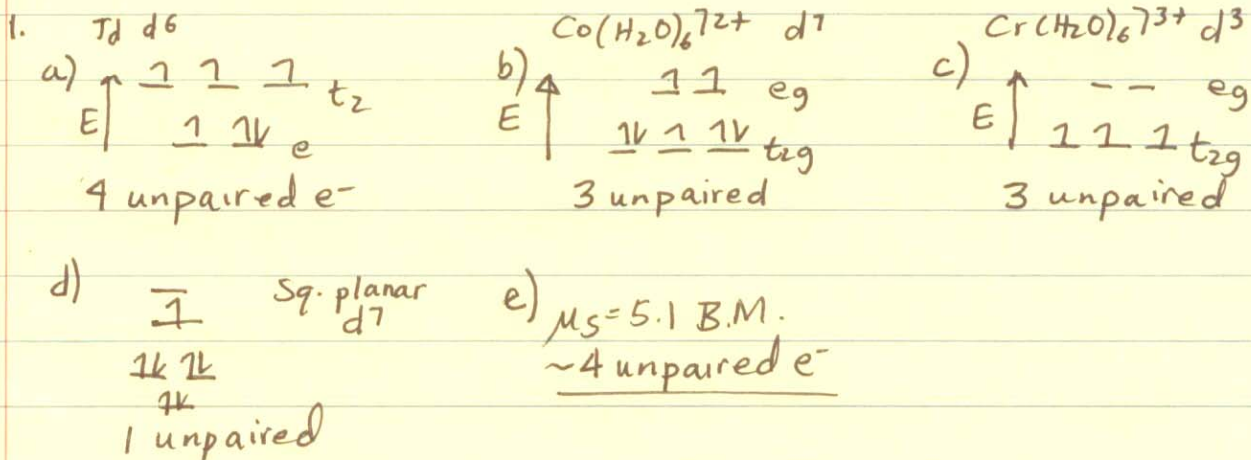 1. Td d6
a) E 1 1 1 t2
1 1l e
4 unpaired e-
Co(H2O)6]2+ d7
b) E 1 1 eg
1l 1 1l t2g
3 unpaired
Cr(H2O)6]3+ d3
c) E _ _ eg
1 1 1 t2g
3 unpaired
d) Sq. planar
d7
1
1l 1l
1l
1 unpaired
e) μs=5.1 B.M.
~4 unpaired e-